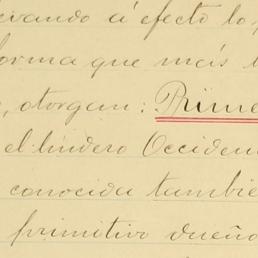 levando á efecto lo p
forma que más
, otorgan: Prime
el lindero Occiden
conocida tambie
primitivo dueño